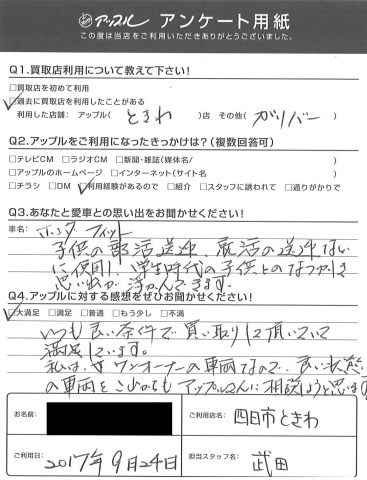 アップル アンケート用紙
この度は当店をご利用いただきありがとうございました。
Q1.買取店利用について教えて下さい!
□買取店を初めて利用
☑過去に買取店を利用したことがある
利用した店舗: アップル( ときわ )店 その他( ガリバー )
Q2.アップルをご利用になったきっかけは?(複数回答可)
□テレビCM □ラジオCM □新聞・雑誌(媒体名/ )
□アップルのホームページ □インターネット(サイト名 )
□チラシ □DM ☑利用経験があるので □紹介 □スタッフに誘われて □通りがかりで
Q3.あなたと愛車との思い出をお聞かせください!
車名: ホンダ フィット
子供の部活送迎、就活の送迎など
に使用し、学生時代の子供との
思い出が浮かんできます。
Q4.アップルに対する感想をぜひお聞かせください!
☑大満足 □満足 □普通 □もう少し □不満
いつも良い条件で買い取りして頂いていて
満足しています。
私は、ワンオーナーの車両なので、良い状態
の車両をこれからもアップルさんに相談しようと思います
お名前:
ご利用店名: 四日市ときわ
ご利用日: 2017年9月24日
担当スタッフ名: 武田